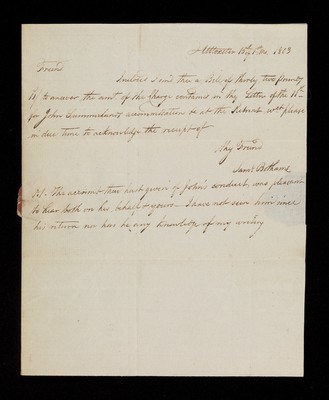 Uttoxeter 15th 1st mo 1803
Friend
Inclosed I send thee a Bill of thirty two pounds
to answer the amt. of the Charge contained in thy Letter of the 11th
for John Summerland's accommodation &c at the Retreat wch please
in due time to acknowledge the receipt of
thy Friend
Saml Botham
P.S. The account thou hast given of John's conduct, was pleasant
to hear both on his behalf & yours - I have not seen him since
his return nor has he any knowledge of my writing